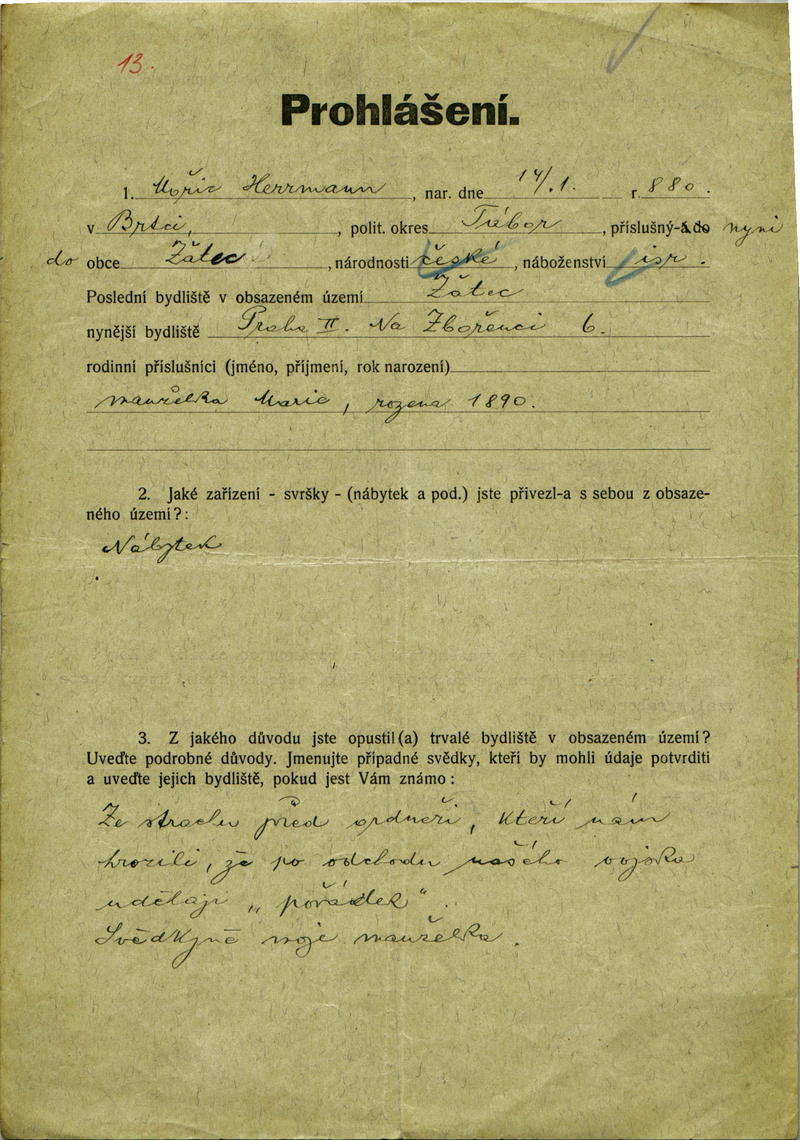 13.
Prohlášení.
1. Mořic Herrmann, nar. dne 14/1. r. 880.
v , polit. okres Tábor, příslušný-á do nyní
do obce Žatec, národnosti české, náboženství isr.
Poslední bydliště v obsazeném území Žatec
nynější bydliště Praha II. Na Zbořenci 6.
rodinní příslušníci (jméno, příjmení, rok narození)
manželka Marie, rozena 1890.
2. Jaké zařízení - svršky - (nábytek a pod.) jste přivezl-a s sebou z obsaze-
ného území?:
Nábytek
3. Z jakého důvodu jste opustil(a) trvalé bydliště v obsazeném území?
Uveďte podrobné důvody. Jmenujte případné svědky, kteří by mohli údaje potvrditi
a uveďte jejich bydliště, pokud jest Vám známo:
Ze strachu před ordneři, kteří nám
hrozili, že po odchodu našeho vojska
udělají „pořádek“.
Svědkyně moje manželka.